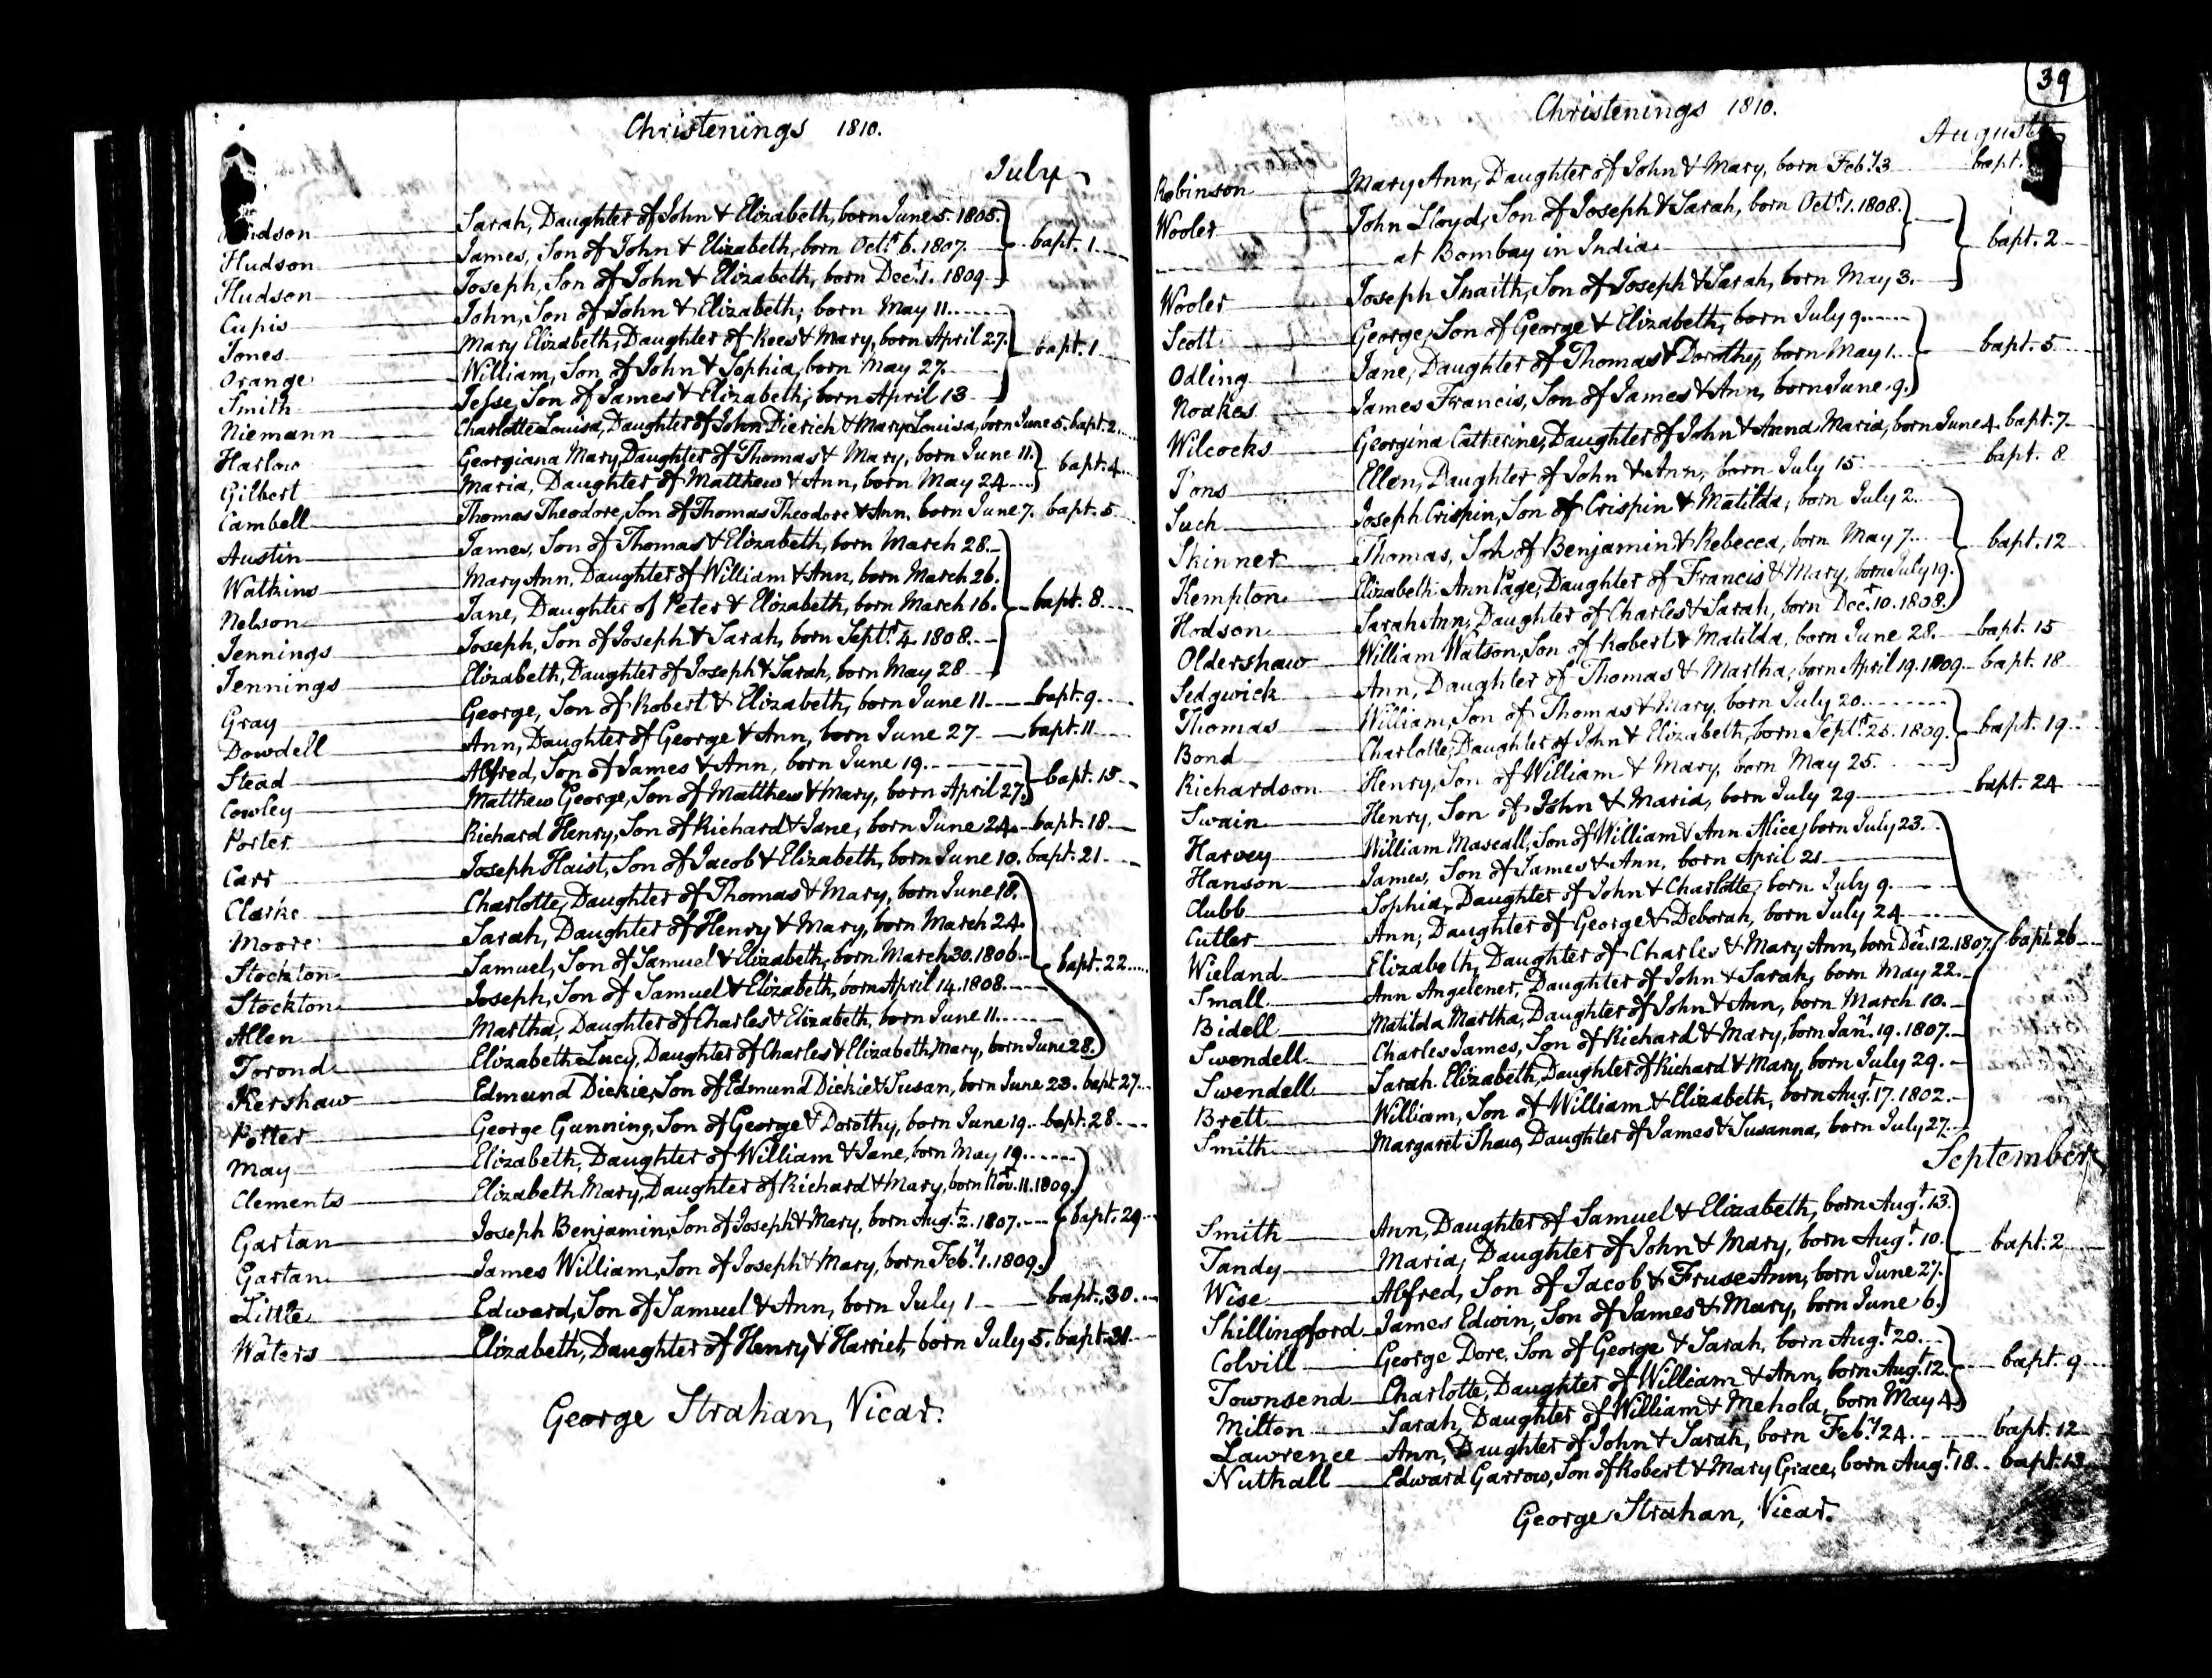 Christenings 1810.
July
Hudson Sarah, Daughter of John & Elizabeth, born June 5. 1805.
Hudson James, Son of John & Elizabeth, born Octr. 6. 1807. bapt. 1
Hudson Joseph, Son of John & Elizabeth, born Decr. 1. 1809
Cupis John, Son of John & Elizabeth, born May 11
Jones Mary Elizabeth, Daughter of Rees & Mary, born April 27. bapt. 1
Orange William, Son of John & Sophia, born May 27
Smith Jesse, Son of James & Elizabeth, born April 13
Niemann Charlotte Louisa, Daughter of John Dierich & Mary Louisa, born June 5. bapt. 2
Harlow Georgiana Mary, Daughter of Thomas & Mary, born June 11. bapt. 4
Gilbert Maria, Daughter of Matthew & Ann, born May 24
Cambell Thomas Theodore, Son of Thomas Theodore & Ann, born June 7. bapt. 5
Austin James, Son of Thomas & Elizabeth, born March 28.
Watkins Mary Ann, Daughter of William & Ann, born March 26.
Nelson Jane, Daughter of Peter & Elizabeth, born March 16. bapt. 8
Jennings Joseph, Son of Joseph & Sarah, born Septr. 4 1808.
Jennings Elizabeth, Daughter of Joseph & Sarah, born May 28
Gray George, Son of Robert & Elizabeth, born June 11 bapt. 9
Dowdell Ann, Daughter of George & Ann, born June 27 bapt. 11
Stead Alfred, Son of James & Ann, born June 19. bapt. 15
Cowley Matthew George, Son of Matthew & Mary, born April 27.
Porter Richard Henry, Son of Richard & Jane, born June 24. bapt. 18
Carr Joseph Haist, Son of Jacob & Elizabeth, born June 10. bapt. 21
Clarke Charlotte, Daughter of Thomas & Mary, born June 18.
Moore Sarah, Daughter of Henry & Mary, born March 24.
Stockton Samuel, Son of Samuel & Elizabeth, born March 30. 1806. bapt. 22
Stockton Joseph, Son of Samuel & Elizabeth, born April 14. 1808.
Allen Martha, Daughter of Charles & Elizabeth, born June 11.
Torond Elizabeth Lucy, Daughter of Charles & Elizabeth Mary, born June 28.
Kershaw Edmund Dickie, Son of Edmund Dickie & Susan, born June 23. bapt. 27
Potter George Gunning, Son of George & Dorothy, born June 19. bapt. 28
May Elizabeth, Daughter of William & Jane, born May 19.
Clements Elizabeth Mary, Daughter of Richard & Mary, born Novr. 11. 1809.
Gartan Joseph Benjamin, Son of Joseph & Mary, born Augt. 2. 1807. bapt. 29
Gartan James William, Son of Joseph & Mary, born Feby. 1. 1809.
Little Edward, Son of Samuel & Ann, born July 1 bapt. 30.
Waters Elizabeth, Daughter of Henry & Harriet, born July 5. bapt. 31
George Strahan, Vicar.
39
Christenings 1810.
August
Robinson Mary Ann, Daughter of John & Mary, born Feby. 3 bapt.
Wooler John Lloyd, Son of Joseph & Sarah, born Octr. 1. 1808.
at Bombay in India bapt. 2
Wooler Joseph Snaith, Son of Joseph & Sarah, born May 3.
Scott George, Son of George & Elizabeth, born July 9.
Odling Jane, Daughter of Thomas & Dorothy, born May 1. bapt. 5
Noakes James Francis, Son of James & Ann, born June 9.
Wilcocks Georgina Catherine, Daughter of John & Anna Maria, born June 4. bapt. 7
Ions Ellen, Daughter of John & Ann, born July 15 bapt. 8
Such Joseph Crispin, Son of Crispin & Matilda, born July 2.
Skinner Thomas, Son of Benjamin & Rebecca, born May 7. bapt. 12
Kempton Elizabeth Ann Page, Daughter of Francis & Mary, born July 19.
Hodson Sarah Ann, Daughter of Charles & Sarah, born Decr. 10. 1808.
Oldershaw William Watson, Son of Robert & Matilda, born June 28. bapt. 15
Sedgwick Ann, Daughter of Thomas & Martha, born April 19. 1809 bapt. 18
Thomas William, Son of Thomas & Mary, born July 20.
Bond Charlotte, Daughter of John & Elizabeth, born Septr. 25. 1809. bapt. 19
Richardson Henry, Son of William & Mary, born May 25.
Swain Henry, Son of John & Maria, born July 29 bapt. 24
Harvey William Mascall, Son of William & Ann Alice, born July 23.
Hanson James, Son of James & Ann, born April 21
Clubb Sophia, Daughter of John & Charlotte, born July 9.
Cutler Ann, Daughter of George & Deborah, born July 24
Wieland Elizabeth, Daughter of Charles & Mary Ann, born Decr. 12. 1807. bapt. 26
Small Ann Angelener, Daughter of John & Sarah, born May 22.
Bidell Matilda Martha, Daughter of John & Ann, born March 10.
Swendell Charles James, Son of Richard & Mary, born Jany. 19. 1807.
Swendell Sarah Elizabeth, Daughter of Richard & Mary, born July 29.
Brett William, Son of William & Elizabeth, born Augt. 17. 1802.
Smith Margaret Shaw, Daughter of James & Susanna, born July 27.
September
Smith Ann, Daughter of Samuel & Elizabeth, born Augt. 13.
Tandy Maria, Daughter of John & Mary, born Augt. 10. bapt. 2
Wise Alfred, Son of Jacob & Fruse Ann, born June 27.
Shillingford James Edwin, Son of James & Mary, born June 6.
Colvill George Dore, Son of George & Sarah, born Augt. 20.
Townsend Charlotte, Daughter of William & Ann, born Augt. 12. bapt. 9
Milton Sarah, Daughter of William & Mehola, born May 4.
Lawrence Ann, Daughter of John & Sarah, born Feby. 24. bapt. 12
Nuthall Edward Garrow, Son of Robert & Mary Grace, born Augt. 18. bapt. 13
George Strahan, Vicar.